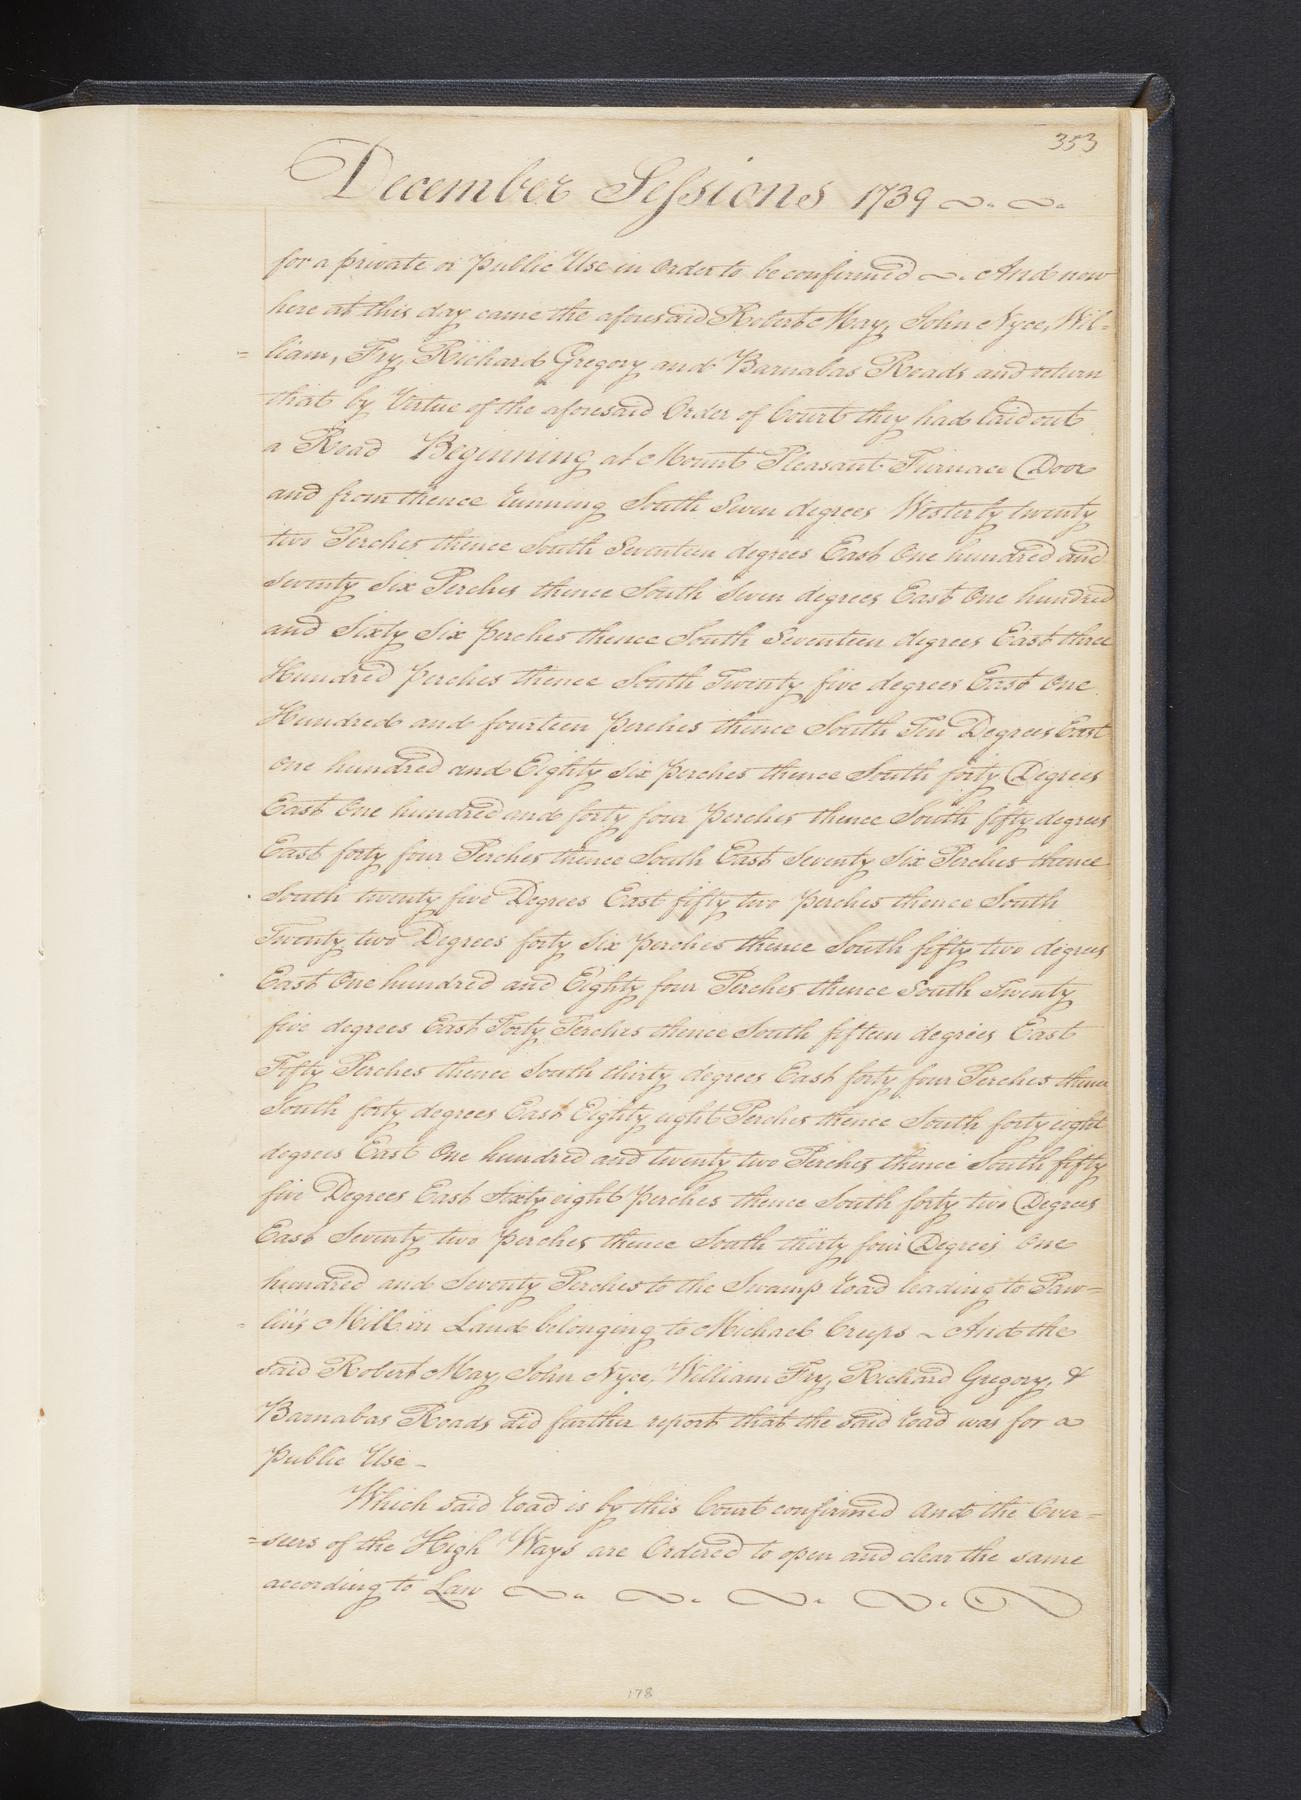 353
December Sessions 1739
for a private or Public Use in Order to be confirmed ~. And now
here at this day came the aforesaid Robert May, John Nyce, Wil=
=liam, Fry, Richard Gregory and Barnabas Roads and return
that by Virtue of the aforesaid Order of Court they had laid out
a Road Beginning at Mount Pleasant Furnace Door
and from thence running South Seven degrees Westerly twenty
two Perches thence South Seventeen degrees East One hundred and
Seventy Six Perches thence South Seven degrees East One hundred
and Sixty Six perches thence South Seventeen degrees East three
Hundred perches thence South Twenty five degrees East One
Hundred and fourteen perches thence South Ten Degrees East
One hundred and Eighty Six perches thence South forty Degrees
East One hundred and forty four perches thence South fifty degrees
East forty four Perches thence South East Seventy Six Perches thence
South twenty five Degrees East fifty two perches thence South
Twenty two Degrees forty Six perches thence South fifty two degrees
East One hundred and Eighty four Perches thence South Twenty
five degrees East Forty Perches thence South fifteen degrees East
Fifty Perches thence South thirty degrees East forty four Perches thence
South forty degrees East Eighty eight Perches thence South forty eight
degrees East One hundred and twenty two Perches thence South fifty
five Degrees East Sixty eight perches thence South forty two Degrees
East Seventy two perches thence South thirty four Degrees One
hundred and Seventy Perches to the Swamp road leading to Paw=
=lin's Mill in Land belonging to Michael Creps ~ And the
said Robert May, John Nyce, William Fry, Richard Gregory, &
Barnabas Roads did further report that the said road was for a
Public Use -
Which said road is by this Court confirmed and the Over=
=seers of the High Ways are Ordered to open and clear the same
according to Law
178